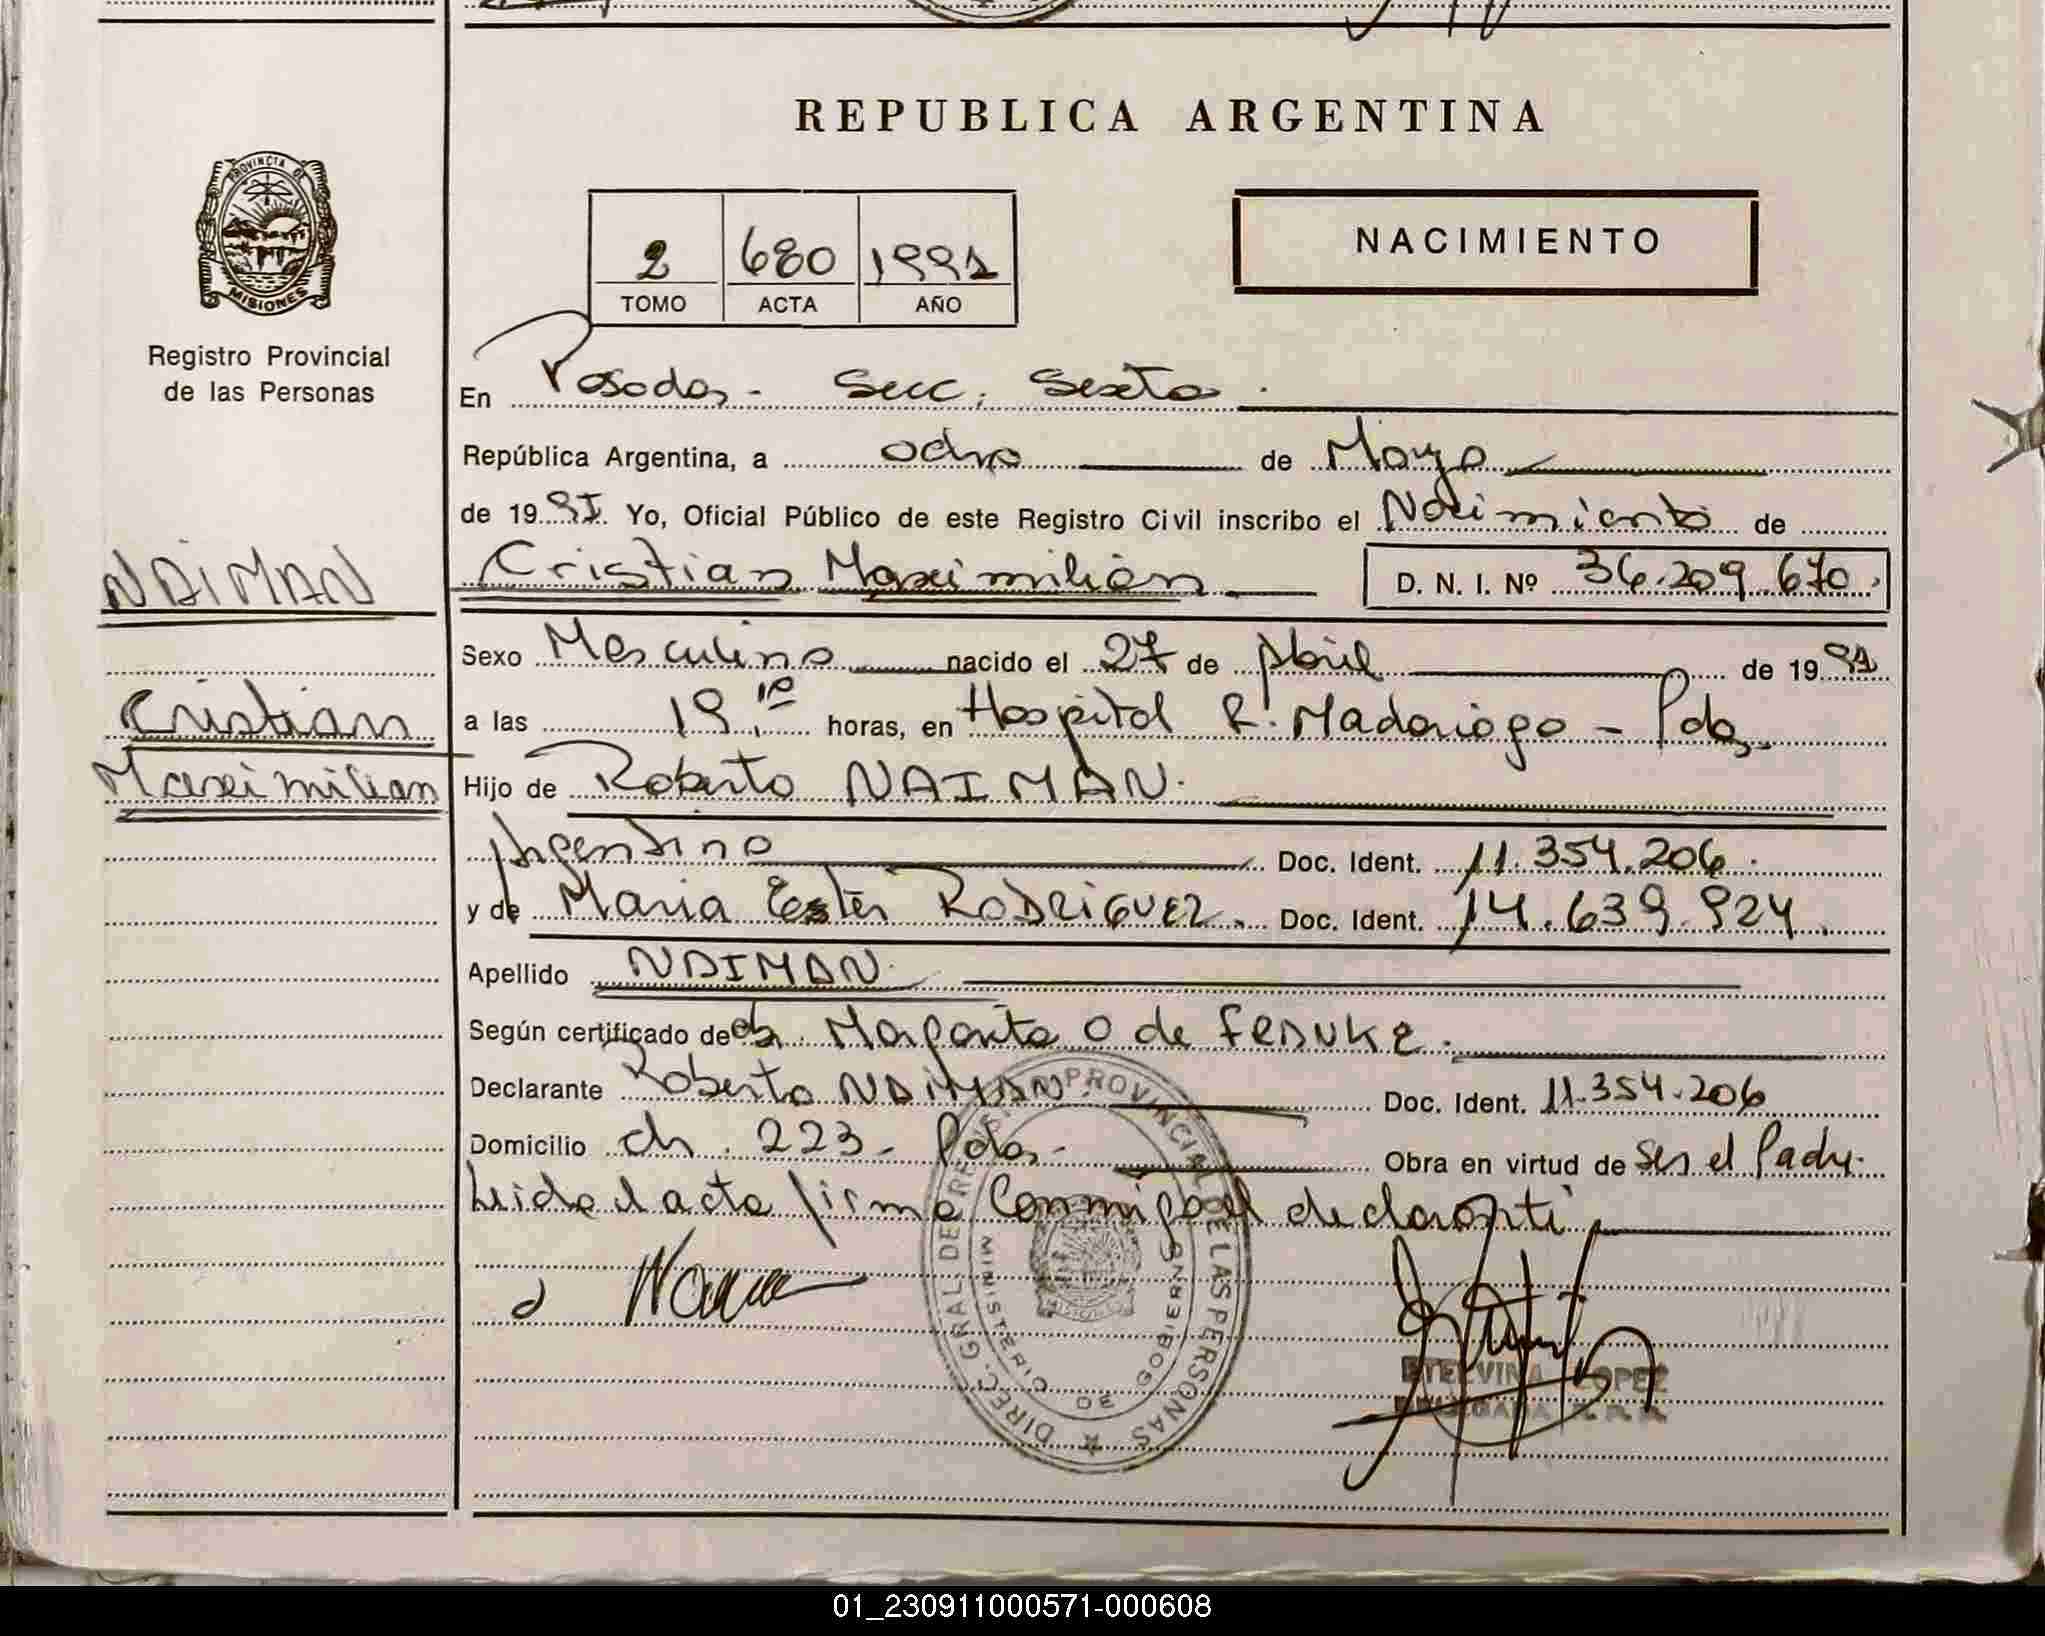 REPUBLICA ARGENTINA
PROVINCIA DE
MISIONES
Registro Provincial
de las Personas
2 680 1991
TOMO ACTA AÑO
NACIMIENTO
En Posadas - Secc. Sexta.
República Argentina, a ocho de Mayo
de 1991. Yo, Oficial Público de este Registro Civil inscribo el Nacimiento de
NAIMAN
Cristian Maximilian
Cristian Maximilián D. N. I. Nº 36.209.670.
Sexo Masculino nacido el 27 de Abril de 1991
a las 19,10 horas, en Hospital R. Madariaga - Pdas.
Hijo de Roberto NAIMAN.
Argentino Doc. Ident. 11.354.206.
y de Maria Ester RODRIGUEZ. Doc. Ident. 14.639.924.
Apellido NAIMAN.
Según certificado de Margarita O de FEDUKE.
Declarante Roberto NAIMAN. Doc. Ident. 11.354.206
Domicilio ch. 223 - Pdas. Obra en virtud de ser el Padre.
Leida el acta firma conmigo el declarante
DIREC. GRAL. DE REGISTRO PROVINCIAL DE LAS PERSONAS
MINISTERIO DE GOBIERNO
ETELVINA LOPEZ
01_230911000571-000608